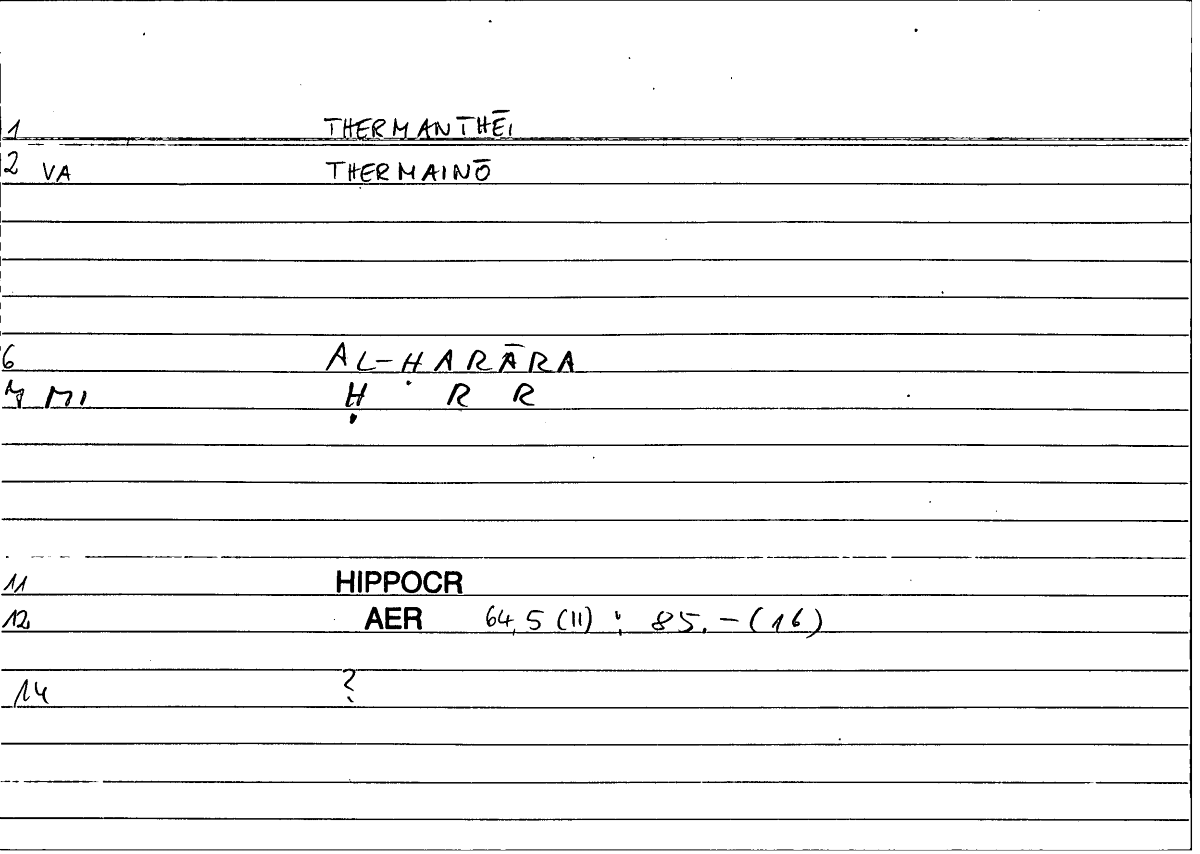 1 THERMANTHĒI
2 VA THERMAINŌ
6 AL-ḤARĀRA
7 MI Ḥ R R
11 HIPPOCR
12 AER 64,5 (11) ; 85.-(16)
14 ?